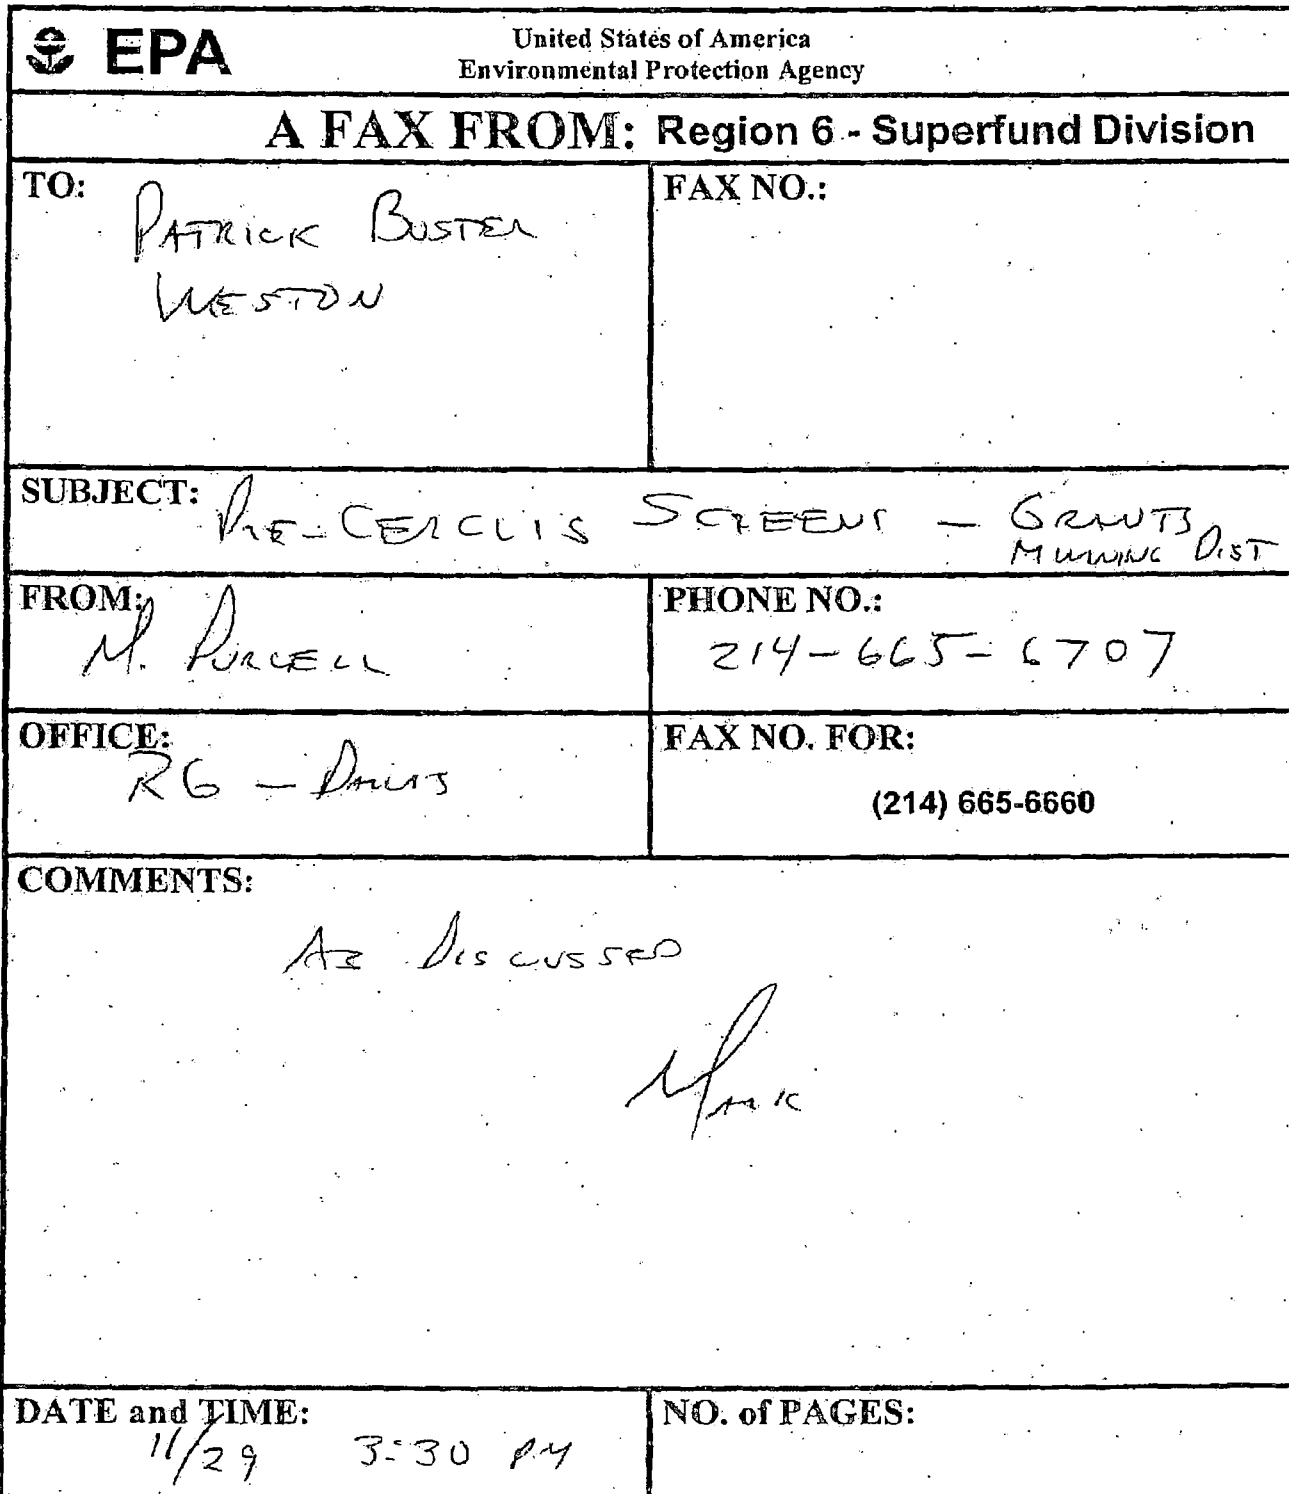 EPA
United States of America
Environmental Protection Agency
A FAX FROM: Region 6 - Superfund Division
TO:
PATRICK BUSTER
WESTON
FAX NO.:
SUBJECT: PRE-CERCLIS SCREENS - GRANTS
MINING DIST
FROM:
M. PURCELL
PHONE NO.:
214-665-6707
OFFICE:
R6 - DALLAS
FAX NO. FOR:
(214) 665-6660
COMMENTS:
AS DISCUSSED
MARK
DATE and TIME:
11/29 3:30 PM
NO. of PAGES: